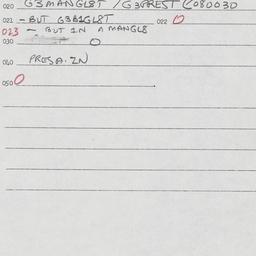 020 G3MANGL8T / G3PREST C080030
021 - BUT G3B1GL8T 022 0
023 - BUT IN A MANGL8
030 O
040 PRESA. 2N
050 O